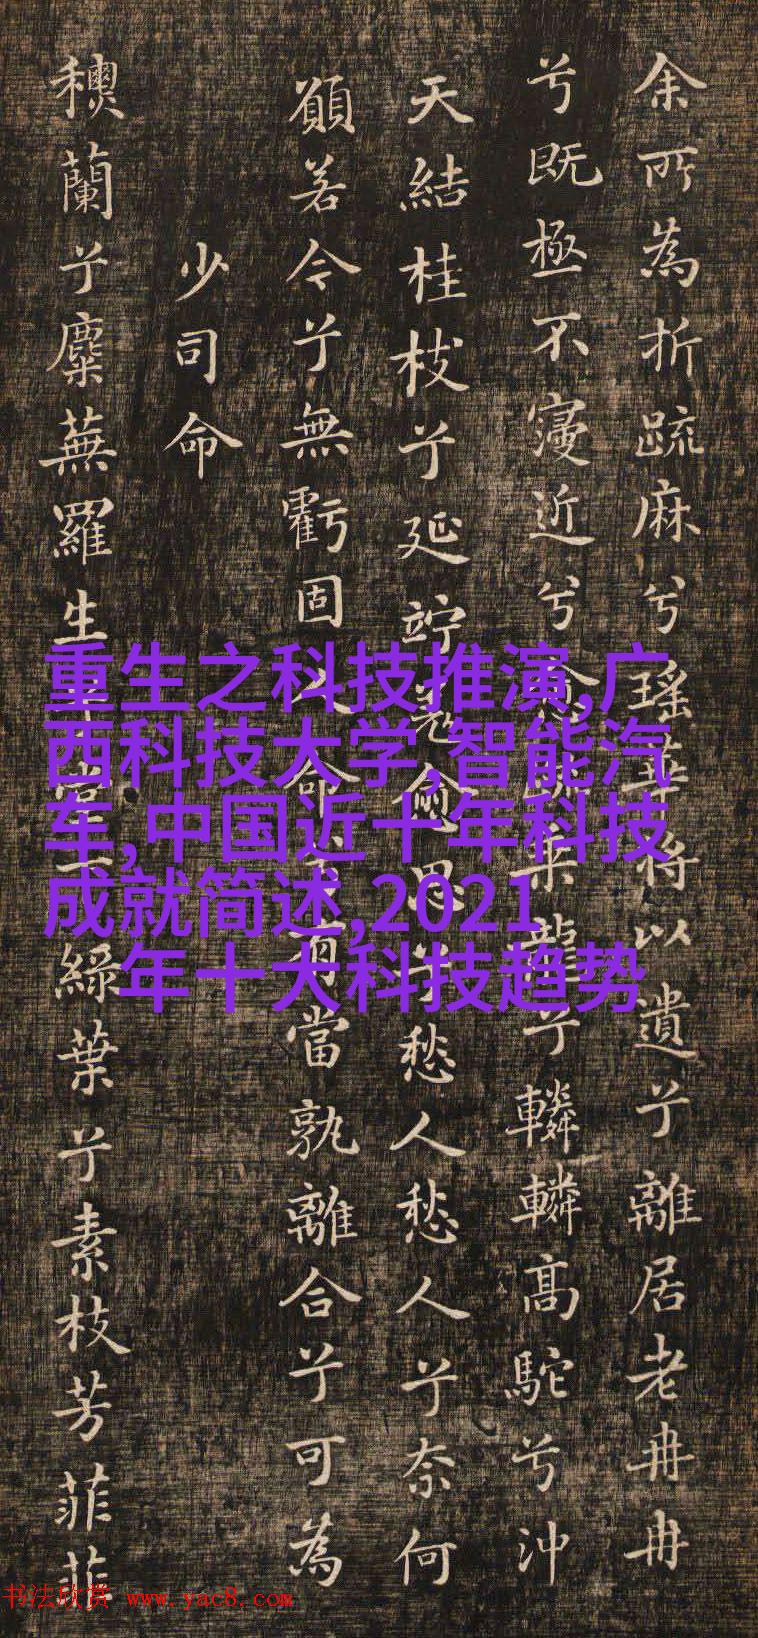 余所為折疏麻兮瑤華将以遺兮離居老冉冉
兮既極不寖近兮愈乘龍兮轔轔高駝兮沖
天結桂枝兮延竚羌愈思兮愁人愁人兮奈何
願若今兮無虧固人命有當孰離合兮可為
少司命
蘭兮麋蕪羅生兮堂下綠葉兮素枝芳菲菲
重生之科技推演,广
西科技大学,智能汽
车,中国近十年科技
成就简述,2021
年十大科技趋势
书法欣赏 www.yac8.com